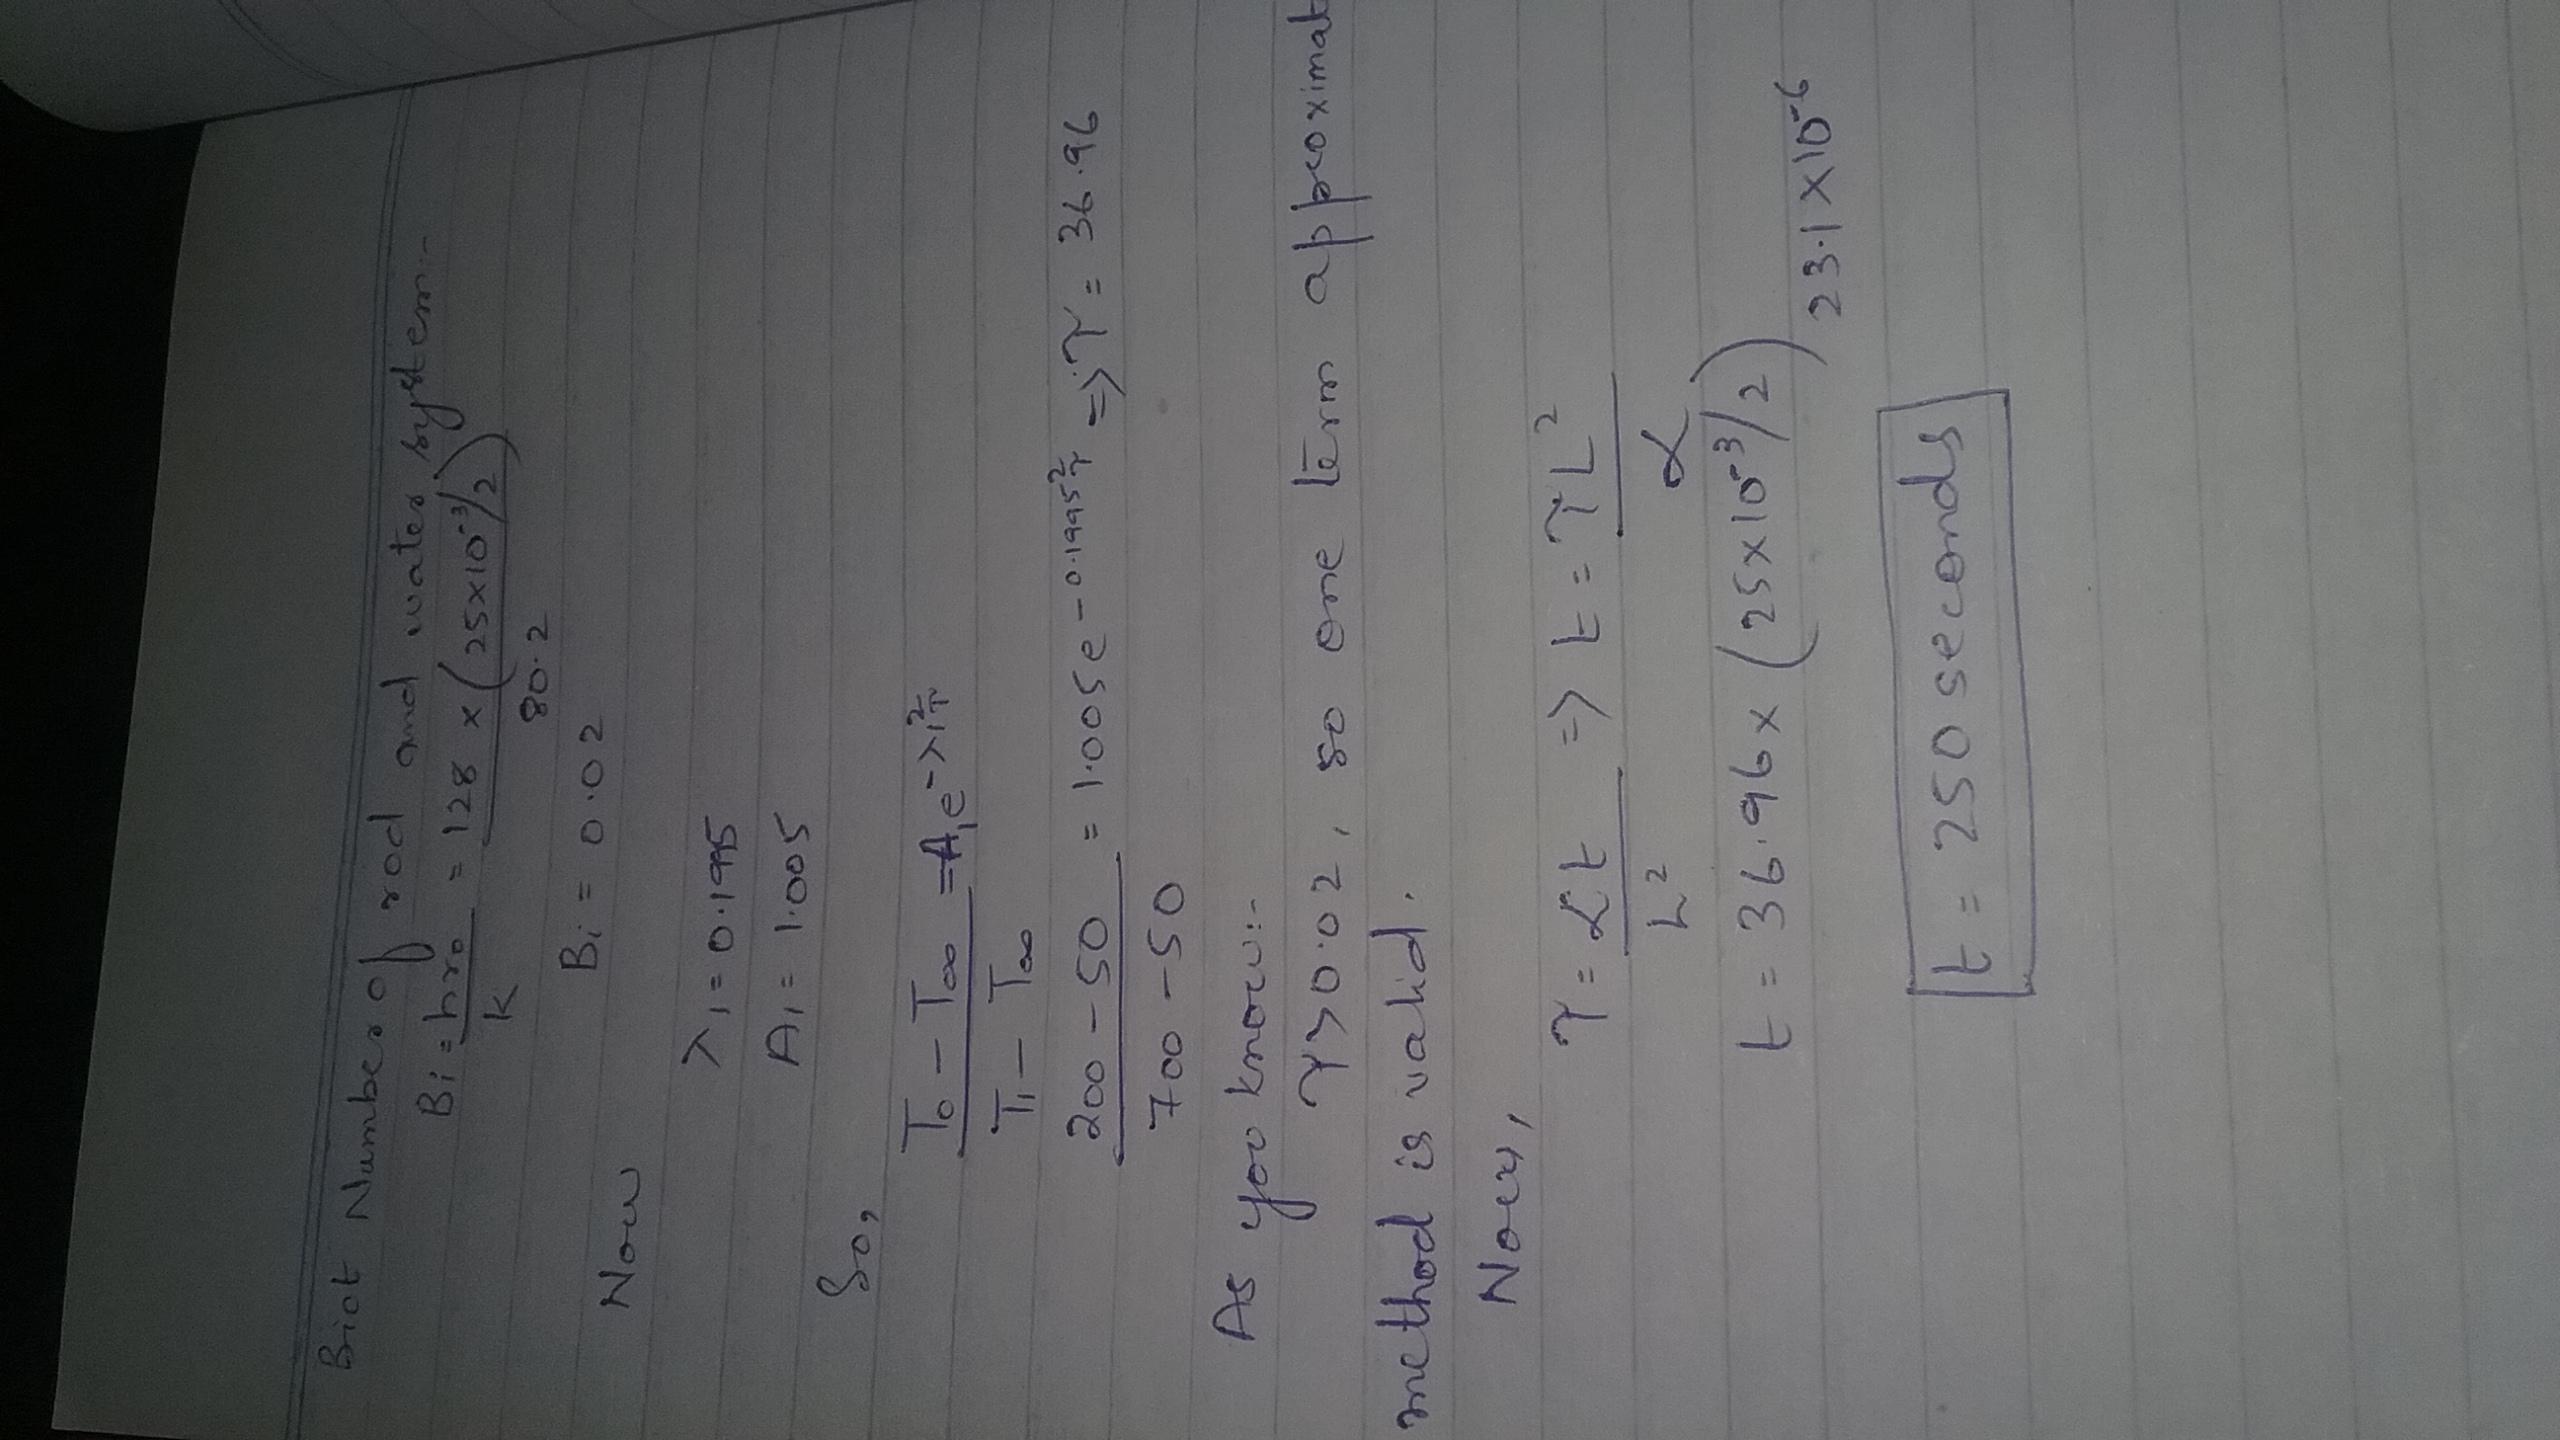 Biot Number of rod and water system:-
Bi = hr₀/K = 128 × (25×10⁻³/2)/80.2
Bi = 0.02
Now
λ₁ = 0.1995
A₁ = 1.005
So,
T₀ - T∞/T₁ - T∞ = A₁e^-λ₁²τ
200 - 50/700 - 50 = 1.005e^-0.1995²τ => τ = 36.96
As you know:-
τ > 0.02, so one term approximat
method is valid.
Now,
τ = αt/L² => t = τL²/α
t = 36.96 × (25×10⁻³/2) 23.1×10⁻⁶
t = 250 seconds